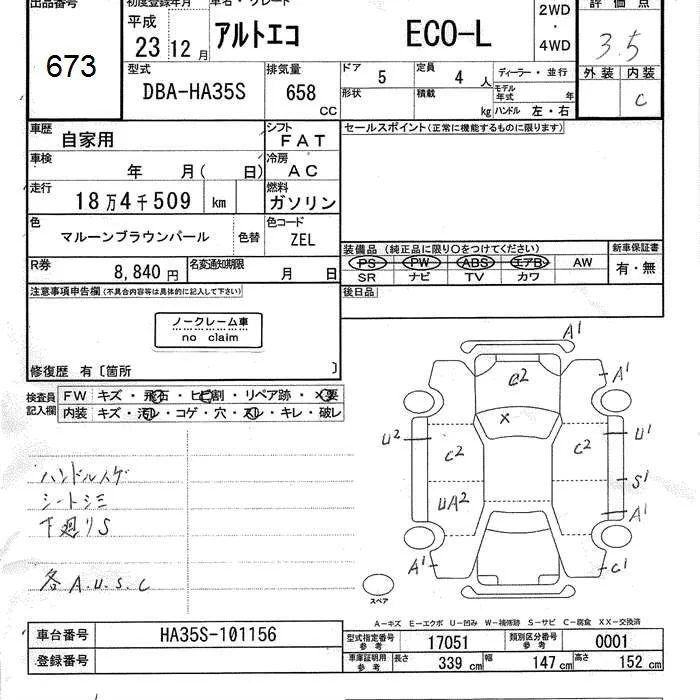 出品番号 初度登録年月 車名・グレード 評価点
673
平成 23 12月
アルトエコ ECO-L
2WD ・ 4WD
3.5
外装 内装
C
型式 DBA-HA35S
排気量 658 CC
ドア 5 定員 4 人
形状 積載 kg
ディーラー・並行
モデル年式 年
ハンドル 左・右
車歴 自家用
シフト FAT
セールスポイント(正常に機能するものに限ります)
車検 年 月( 日)
冷房 AC
走行 18万4千509 km
燃料 ガソリン
色 マルーンブラウンパール 色替
色コード ZEL
装備品 (純正品に限り○をつけてください) 新車保証書
PS PW ABS エアB AW
SR ナビ TV カワ
有・無
R券 8,840円
名変通知期限 月 日
注意事項申告欄 (不具合内容等は具体的に記入して下さい)
後日品
ノークレーム車
no claim
修復歴 有〔箇所 〕
検査員記入欄
FW キズ・飛石・ヒビ割・リペア跡・X要
内装 キズ・汚レ・コゲ・穴・スレ・キレ・破レ
ハンドルスゲ
シートシミ
下廻りS
各A.U.S.C
A1
C2 A1
X
U2 C2 C2 U1
UA2 S1
A1
A1 C1
スペア
A-キズ E-エクボ U-凹み W-補修跡 S-サビ C-腐食 XX-交換済
車台番号 HA35S-101156
登録番号
型式指定番号 参考 17051 類別区分番号 参考 0001
車庫証明用 参考 長さ 339 cm 幅 147 cm 高さ 152 cm